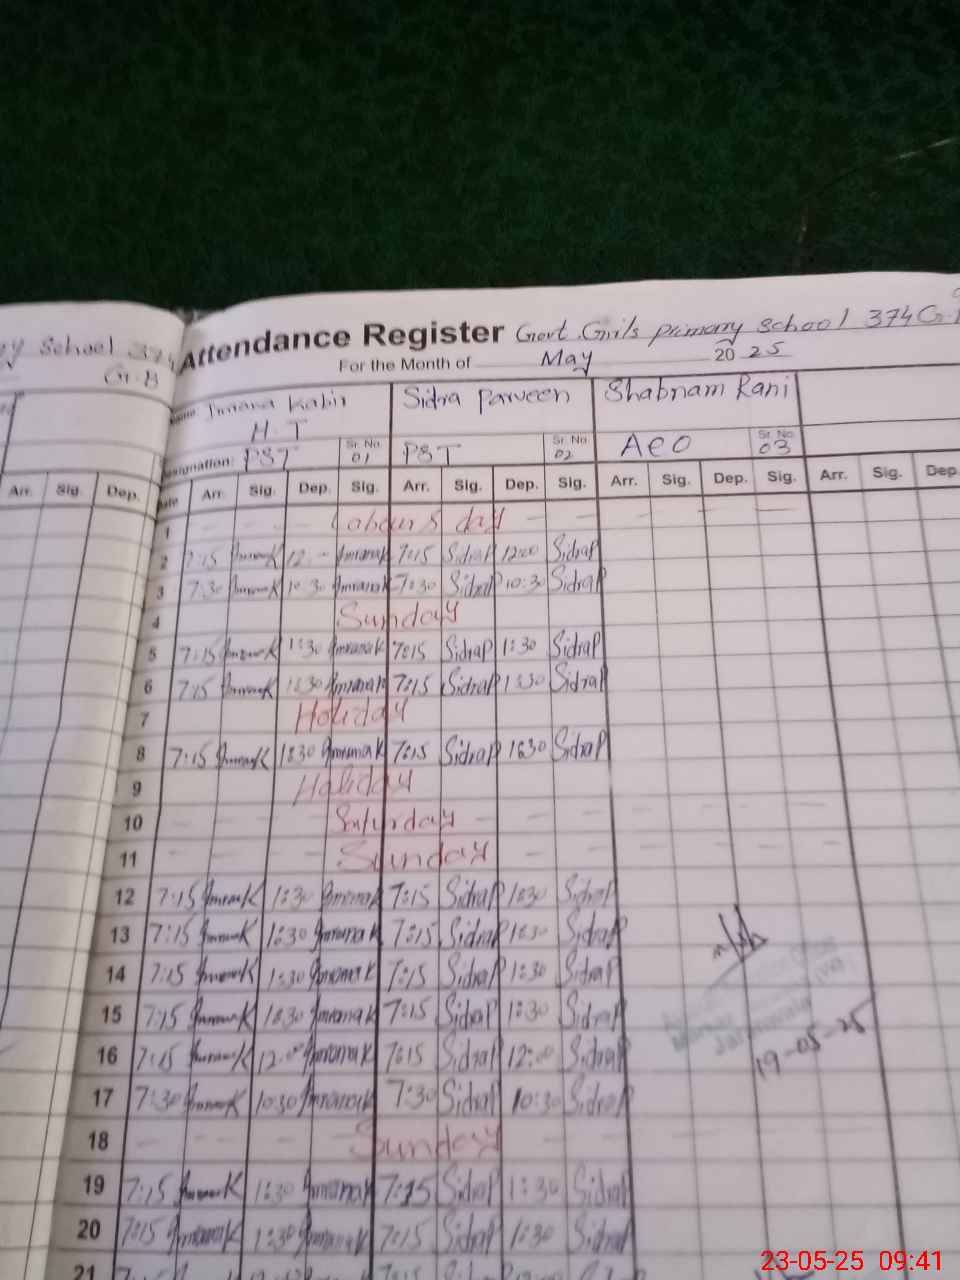 School 374
G.B
Attendance Register Govt Girls primary School 374 G.
For the Month of May 20 25
Name: Imrana Kabir Sidra Parveen Shabnam Rani
H.T
Designation: PST Sr. No. 01 PST Sr. No. 02 AEO Sr. No. 03
Arr. Sig. Dep. Date Arr. Sig. Dep. Sig. Arr. Sig. Dep. Sig. Arr. Sig. Dep. Sig. Arr. Sig. Dep.
1 Labour's day
2 7:15 ImranaK 12 - ImranaK 7:15 SidraP 12:00 SidraP
3 7:30 ImranaK 10:30 ImranaK 7:30 SidraP 10:30 SidraP
4 Sunday
5 7:15 ImranaK 1:30 ImranaK 7:15 SidraP 1:30 SidraP
6 7:15 ImranaK 1:30 ImranaK 7:15 SidraP 1:30 SidraP
7 Holiday
8 7:15 ImranaK 1:30 ImranaK 7:15 SidraP 1:30 SidraP
9 Holiday
10 Saturday
11 Sunday
12 7:15 ImranaK 1:30 ImranaK 7:15 SidraP 1:30 SidraP
13 7:15 ImranaK 1:30 ImranaK 7:15 SidraP 1:30 SidraP
14 7:15 ImranaK 1:30 ImranaK 7:15 SidraP 1:30 SidraP
15 7:15 ImranaK 1:30 ImranaK 7:15 SidraP 1:30 SidraP
16 7:15 ImranaK 12:00 ImranaK 7:15 SidraP 12:00 SidraP
19-05-25
17 7:30 ImranaK 10:30 ImranaK 7:30 SidraP 10:30 SidraP
18 Sunday
19 7:15 ImranaK 1:30 ImranaK 7:15 SidraP 1:30 SidraP
20 7:15 ImranaK 1:30 ImranaK 7:15 SidraP 1:30 SidraP
21
23-05-25 09:41